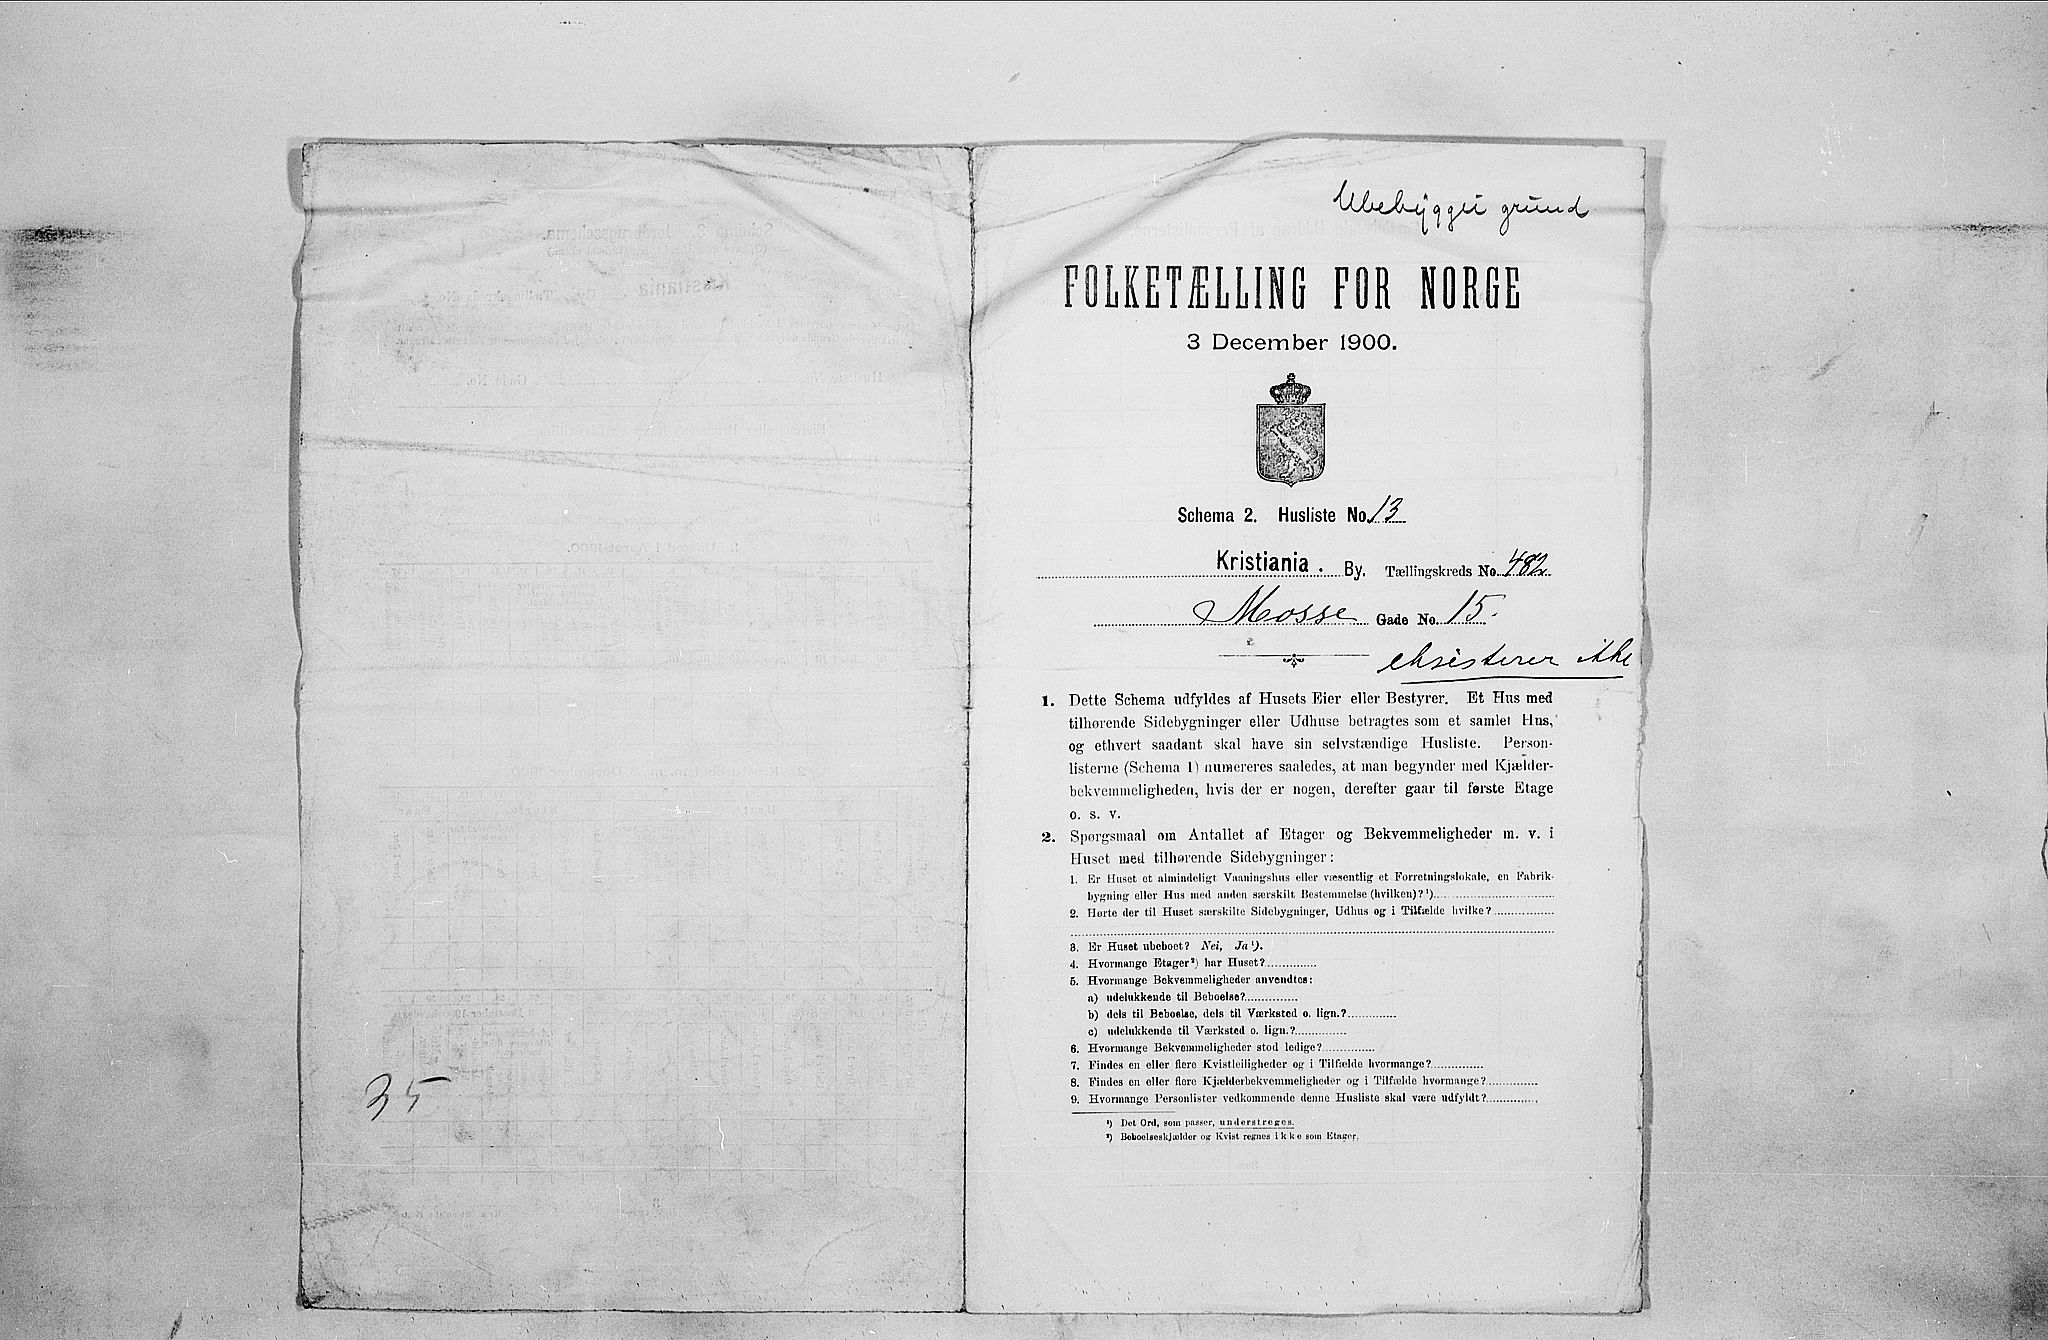 35
Ubebygget grund
FOLKETÆLLING FOR NORGE
3 December 1900.
Schema 2. Husliste No. 13
Kristiania. By. Tællingskreds No. 482
Mosse Gade No. 15.
eksisterer ikke
1. Dette Schema udfyldes af Husets Eier eller Bestyrer. Et Hus med
tilhørende Sidebygninger eller Udhuse betragtes som et samlet Hus,
og ethvert saadant skal have sin selvstændige Husliste. Person-
listerne (Schema 1) numereres saaledes, at man begynder med Kjælder-
bekvemmeligheden, hvis der er nogen, derefter gaar til første Etage
o. s. v.
2. Spørgsmaal om Antallet af Etager og Bekvemmeligheder m. v. i
Huset med tilhørende Sidebygninger:
1. Er Huset et almindeligt Vaaningshus eller væsentlig et Forretningslokale, en Fabrik-
bygning eller Hus med anden særskilt Bestemmelse (hvilken)?¹)
2. Hørte der til Huset særskilte Sidebygninger, Udhus og i Tilfælde hvilke?
3. Er Huset ubeboet? Nei, Ja¹).
4. Hvormange Etager²) har Huset?
5. Hvormange Bekvemmeligheder anvendtes:
a) udelukkende til Beboelse?
b) dels til Beboelse, dels til Værksted o. lign.?
c) udelukkende til Værksted o. lign.?
6. Hvormange Bekvemmeligheder stod ledige?
7. Findes en eller flere Kvistleiligheder og i Tilfælde hvormange?
8. Findes en eller flere Kjælderbekvemmeligheder og i Tilfælde hvormange?
9. Hvormange Personlister vedkommende denne Husliste skal være udfyldt?
¹) Det Ord, som passer, understreges.
²) Beboelseskjælder og Kvist regnes ikke som Etager.